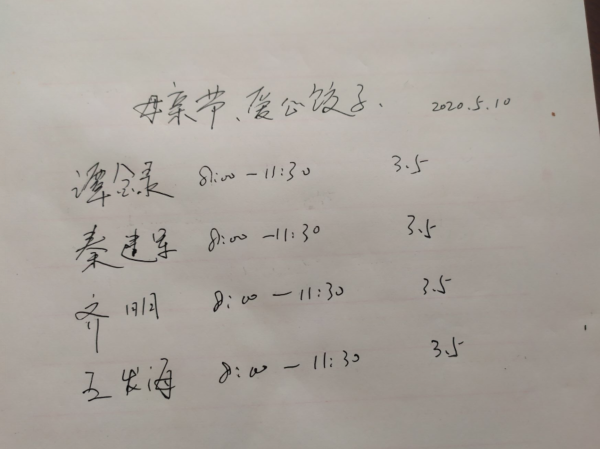 母亲节、爱心饺子、 2020.5.10
谭金录 8:00-11:30 3.5
秦建军 8:00-11:30 3.5
齐明 8:00-11:30 3.5
王发海 8:00-11:30 3.5